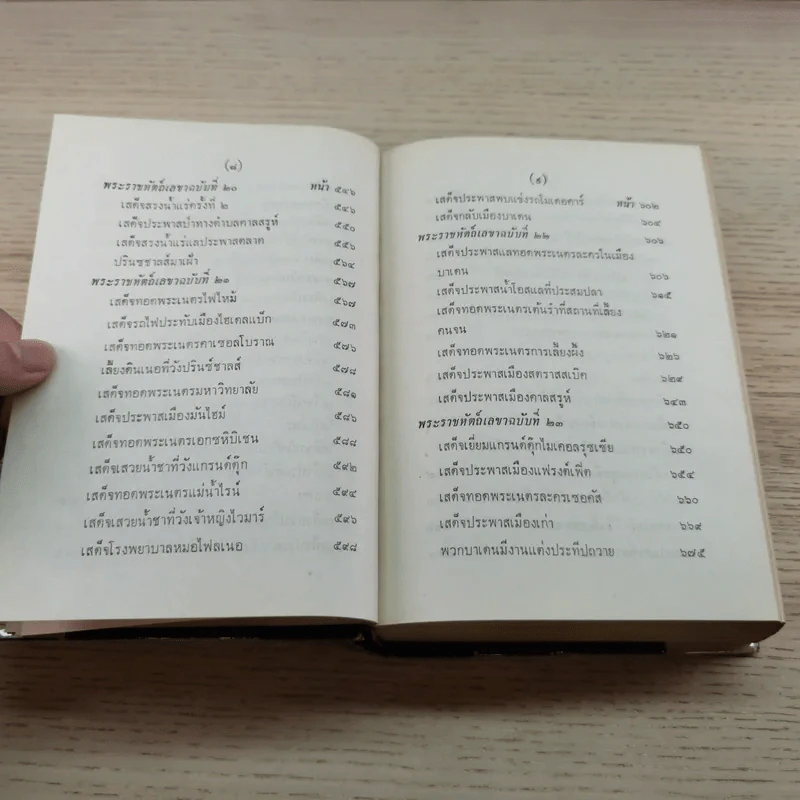 (๘)
พระราชหัตถ์เลขาฉบับที่ ๒๐ หน้า ๕๔๖
เสด็จสรงน้ำแร่ครั้งที่ ๒ ๕๔๖
เสด็จประพาสป่าทางตำบลคาลสรูห์ ๕๕๐
เสด็จสรงน้ำแร่แลประพาสตลาด ๕๕๖
ปรินซชาลส์มาเฝ้า ๕๖๔
พระราชหัตถ์เลขาฉบับที่ ๒๑ ๕๖๗
เสด็จทอดพระเนตรไฟไหม้ ๕๖๗
เสด็จรถไฟประทับเมืองไฮเดลแบ็ก ๕๗๓
เสด็จทอดพระเนตรคาเซอลโบราณ ๕๗๖
เลี้ยงดินเนอที่วังปรินซ์ชาลส์ ๕๗๘
เสด็จทอดพระเนตรมหาวิทยาลัย ๕๘๑
เสด็จประพาสเมืองมันไฮม์ ๕๘๖
เสด็จทอดพระเนตรเอกซหิบิเชน ๕๘๘
เสด็จเสวยน้ำชาที่วังแกรนด์ดุ๊ก ๕๙๒
เสด็จทอดพระเนตรแม่น้ำไรน์ ๕๙๔
เสด็จเสวยน้ำชาที่วังเจ้าหญิงไวมาร์ ๕๙๖
เสด็จโรงพยาบาลหมอไฟลเนอ ๕๙๘
(๙)
เสด็จประพาสคบแข่งรถโมเตอคาร์ หน้า ๖๐๒
เสด็จกลับเมืองบาเดน ๖๐๔
พระราชหัตถ์เลขาฉบับที่ ๒๒ ๖๐๖
เสด็จประพาสแลทอดพระเนตรละครในเมือง
บาเดน ๖๐๖
เสด็จประพาสน้ำโอสแลที่ประสมปลา ๖๑๕
เสด็จทอดพระเนตรเต้นรำที่สถานที่เลี้ยง
คนจน ๖๒๑
เสด็จทอดพระเนตรการเลี้ยงผึ้ง ๖๒๖
เสด็จประพาสเมืองสตราสสเบิค ๖๒๙
เสด็จประพาสเมืองคาลสรูห์ ๖๔๓
พระราชหัตถ์เลขาฉบับที่ ๒๓ ๖๕๐
เสด็จเยี่ยมแกรนด์ดุ๊กไมเคอลรุซเซีย ๖๕๐
เสด็จประพาสเมืองแฟรงค์เฟิต ๖๕๔
เสด็จทอดพระเนตรละครเซอคัส ๖๖๐
เสด็จประพาสเมืองเก่า ๖๖๙
พวกบาเดนมีงานแต่งประทีปถวาย ๖๗๕